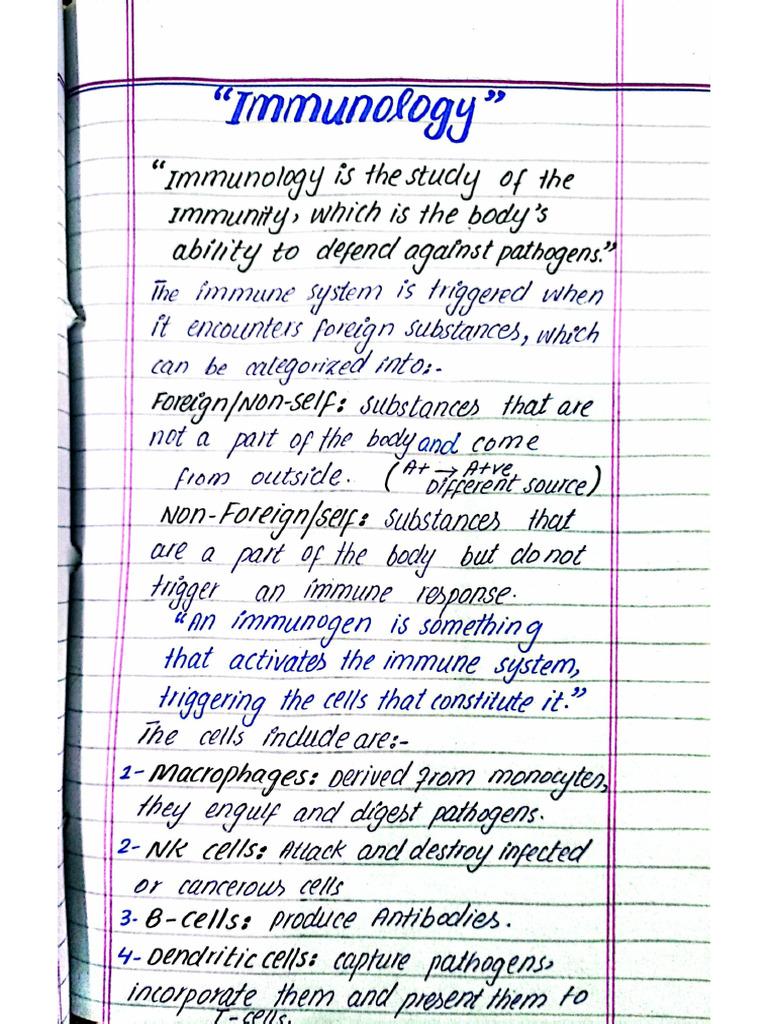 "Immunology"
"Immunology is the study of the
Immunity, which is the body's
ability to defend against pathogens."
The immune system is triggered when
it encounters foreign substances, which
can be categorized into:-
Foreign/Non-self: substances that are
not a part of the body and come
from outside. (A+ → A+ve,
Different source)
Non-Foreign/self: substances that
are a part of the body but do not
trigger an immune response.
"An immunogen is something
that activates the immune system,
triggering the cells that constitute it."
The cells include are:-
1- Macrophages: Derived from monocytes,
they engulf and digest pathogens.
2- NK cells: Attack and destroy infected
or cancerous cells
3- B-cells: produce Antibodies.
4- Dendritic cells: capture pathogens,
incorporate them and present them to
T-cells.